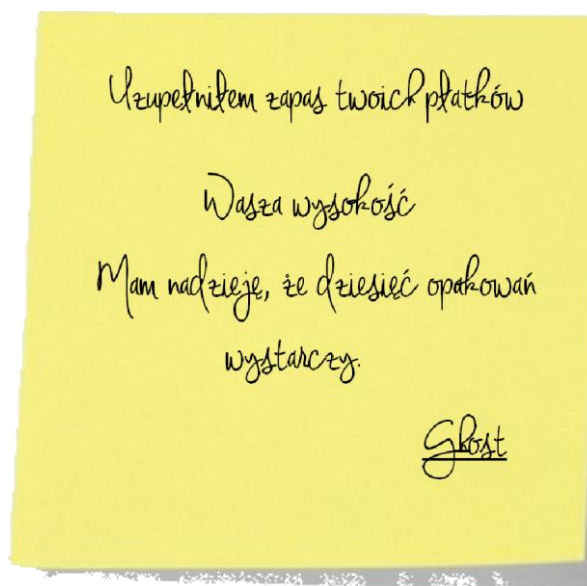 Uzupełniłem zapas twoich płatków
Wasza wysokość
Mam nadzieję, że dziesięć opakowań
wystarczy.
Ghost